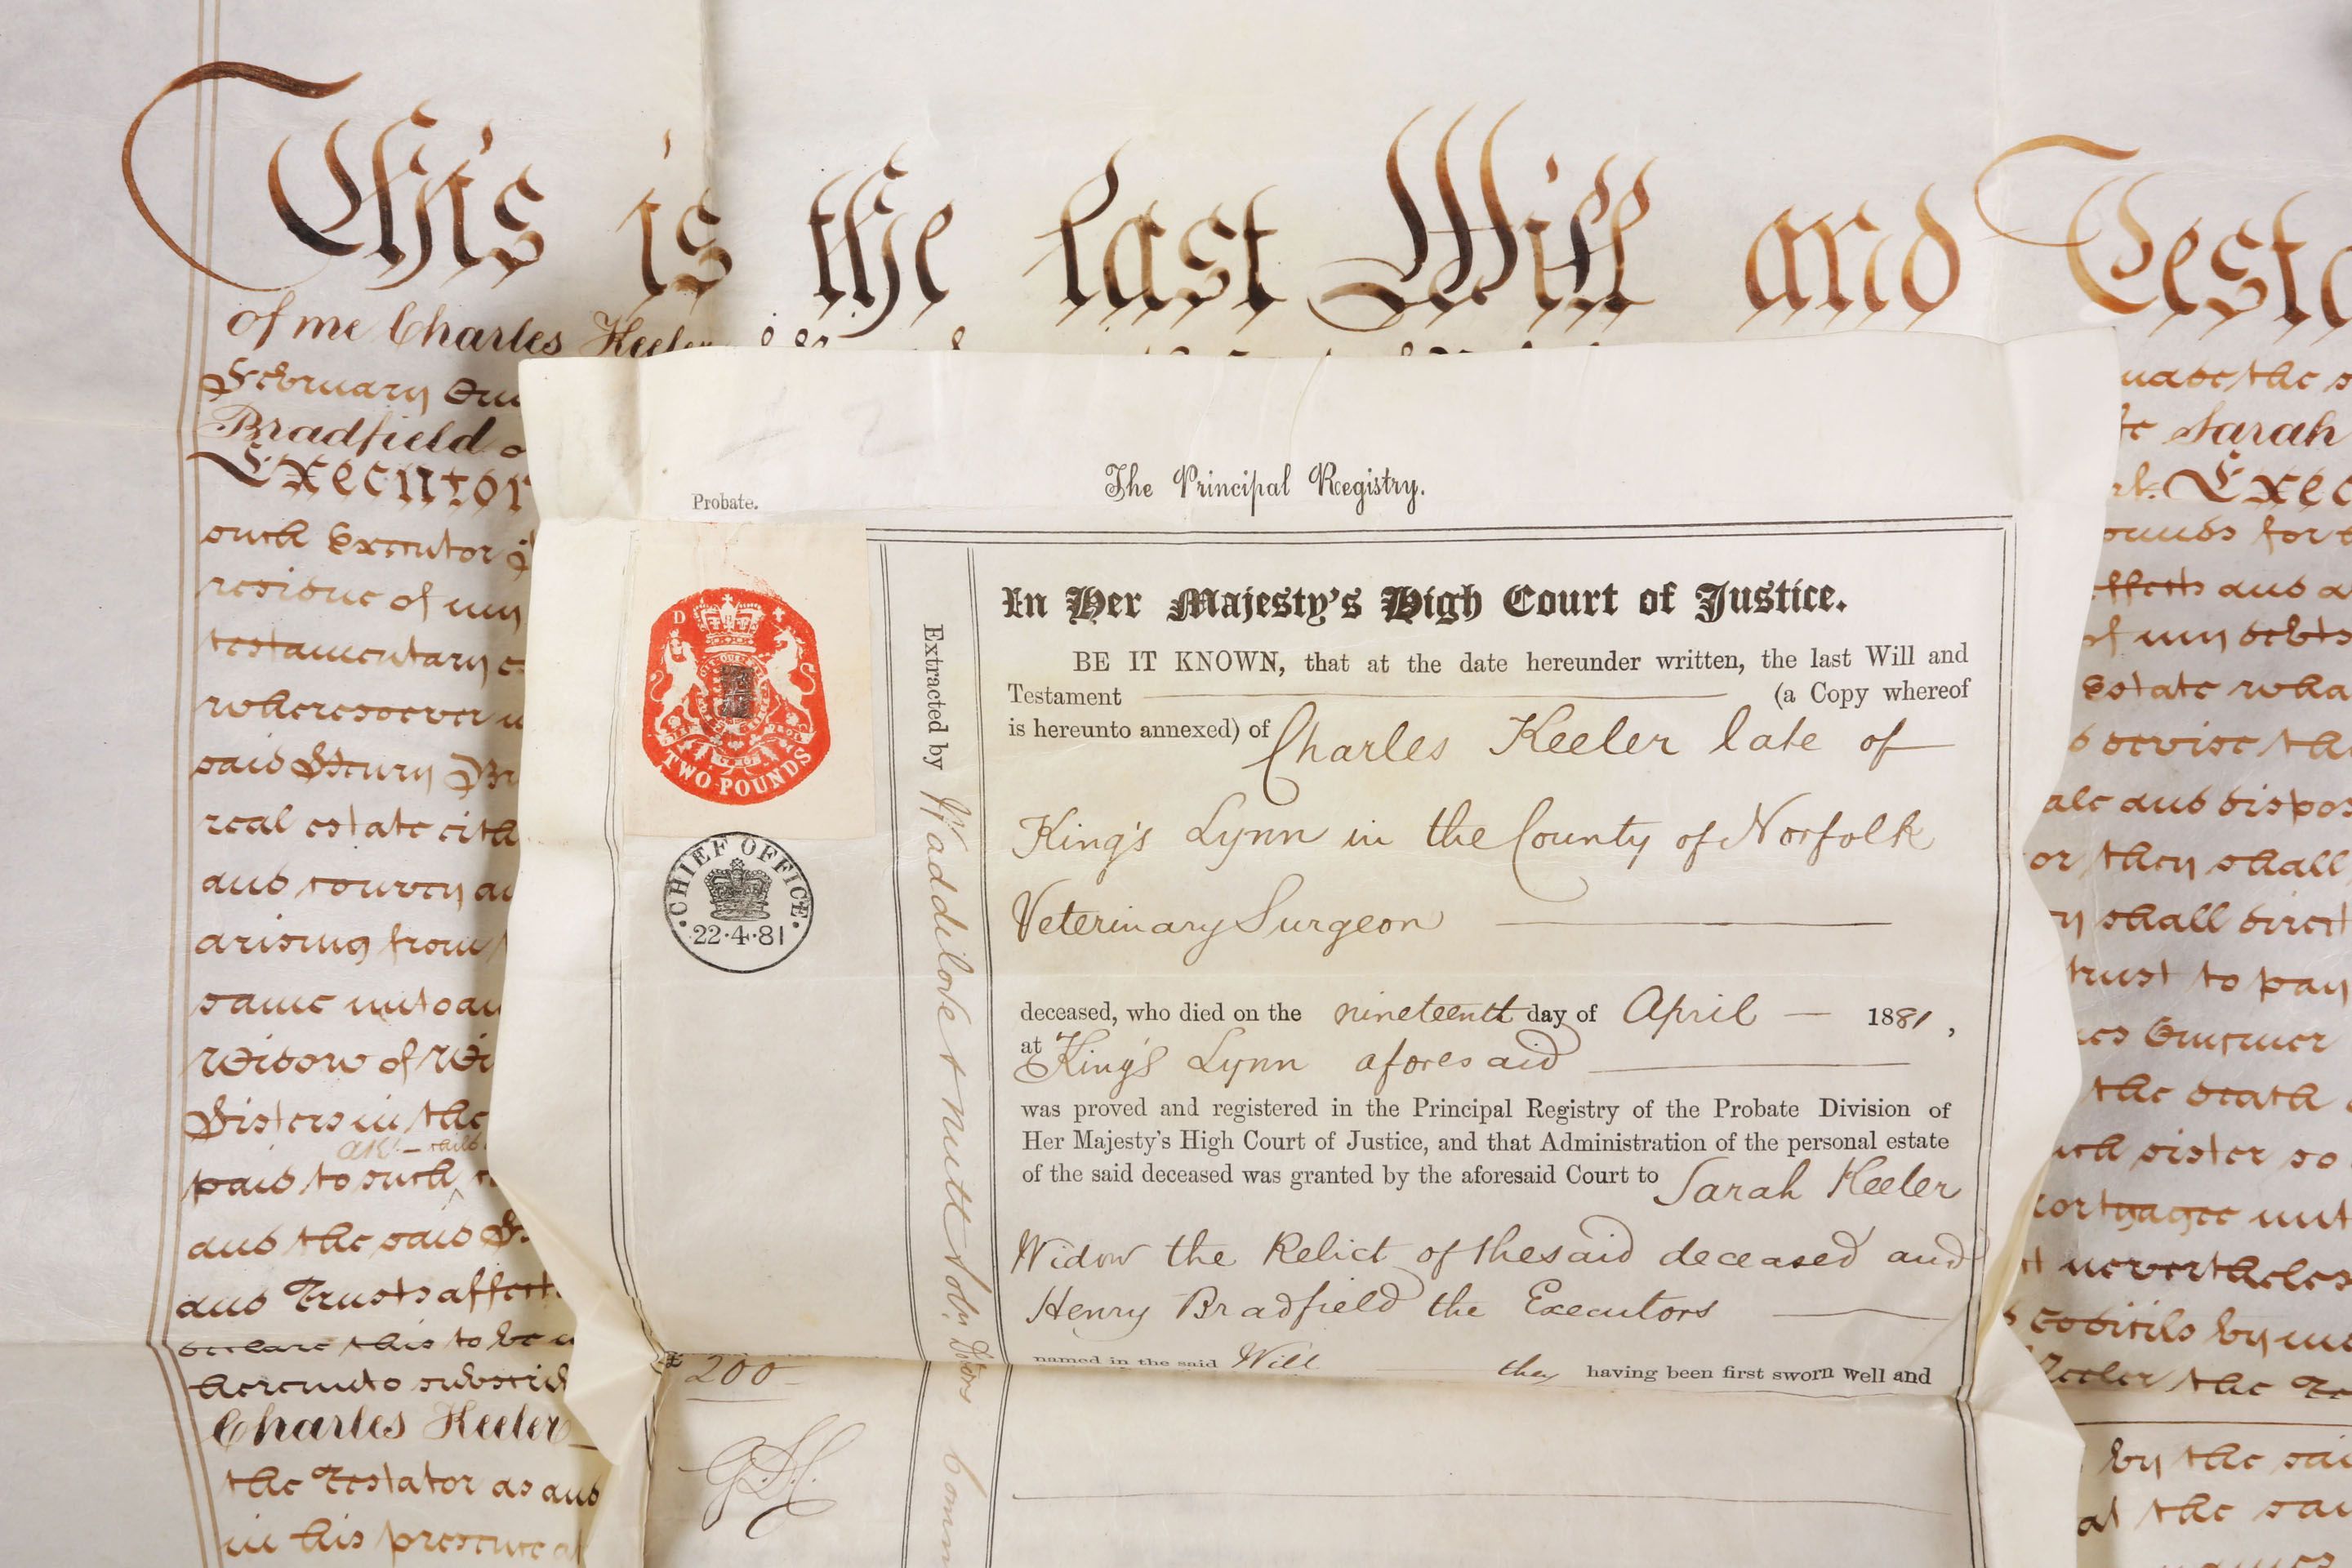 This is the last Will and Testa
of me Charles Keeler
February
Bradfield
Executor
such Executor
residue of my
testamentary
wheresoever
said Henry Br
real estate eith
and convey
arising from
same unto
Widow of
Sisters in the
paid to such
and the said
and Trusts affect
declare this to be
hereunto subscrib
Charles Keeler
the Testator as and
in his presence
the s
Sarah
Exec
for
effects and
of my debts
Estate wha
devise th
ale and dispos
or they shall
shall direct
trust to pay
the death
sister so
mortgagee unt
nevertheless
Codicils by me
Keeler the Te
by the sai
at the sai
Probate.
The Principal Registry.
D
TWO POUNDS
CHIEF OFFICE
22·4·81
£ 200
Extracted by Waddilove & Nutt
In Her Majesty's High Court of Justice.
BE IT KNOWN, that at the date hereunder written, the last Will and
Testament (a Copy whereof
is hereunto annexed) of Charles Keeler late of
King's Lynn in the County of Norfolk
Veterinary Surgeon
deceased, who died on the nineteenth day of April 1881,
at King's Lynn aforesaid
was proved and registered in the Principal Registry of the Probate Division of
Her Majesty's High Court of Justice, and that Administration of the personal estate
of the said deceased was granted by the aforesaid Court to Sarah Keeler
Widow the Relict of the said deceased and
Henry Bradfield the Executors
named in the said Will they having been first sworn well and